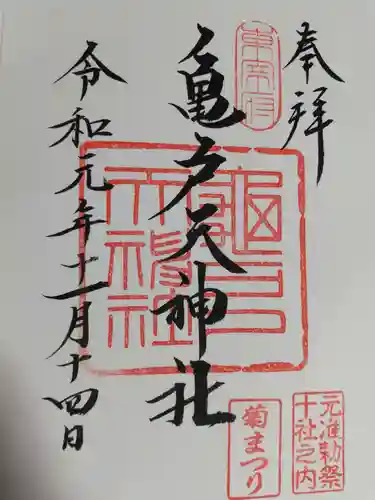 奉拝
亀戸天神社
令和元年十一月十四日
龜戸天神社
元准勅祭
十社之内
菊まつり